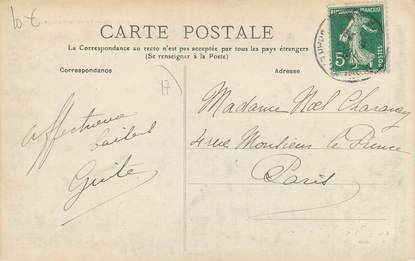 10 €
CARTE POSTALE
La Correspondance au recto n'est pas acceptée par tous les pays étrangers
(Se renseigner à la Poste)
RÉPUBLIQUE FRANÇAISE
5c
POSTES
Correspondance
17
Adresse
Affectueux
baisers
Guite
Madame Noël Charavay
4 rue Monsieur le Prince
Paris